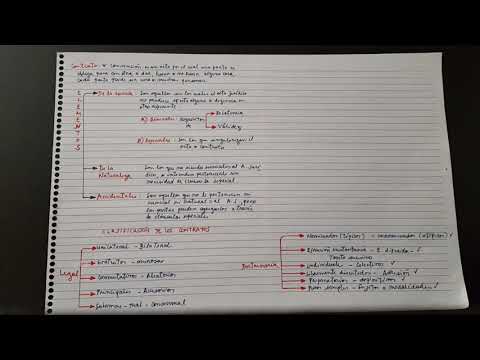 Contrato * Convención es un acto por el cual una parte se
obliga para con otra a dar, hacer o no hacer alguna cosa.
Cada parte puede ser una o muchas personas.
ELEMENTOS
De la esencia: Son aquellos sin los cuales el acto jurídico
no produce efecto alguno o degenera en
otro diferente
A) Generales: requisitos de
Existencia
Validez
B) Especiales: Son los que singularizan el
acto o contrato
De la Naturaleza
Son los que no siendo esenciales al A. Jurí
dico, se entienden pertenecerle sin
necesidad de cláusula especial
Accidentales
Son aquellos que no le pertenecen ni
esencial ni natural al A.J, pero
las partes pueden agregarlos a través
de cláusulas especiales.
CLASIFICACIÓN DE LOS CONTRATOS
Legal
Unilateral - Bilateral
Gratuitos - onerosos
Conmutativos - Aleatorios
Principales - Accesorios
Solemnes - Real - Consensual
Doctrinaria
Nominados (típicos) - Innominados (atípicos) ✓
Ejecución instantánea - E. diferida - ✓
Tracto sucesivo
Individuales - Colectivos ✓
Libremente discutidos - Adhesión ✓
Preparatorios - definitivos ✓
Puro simples - Sujetos a modalidades ✓